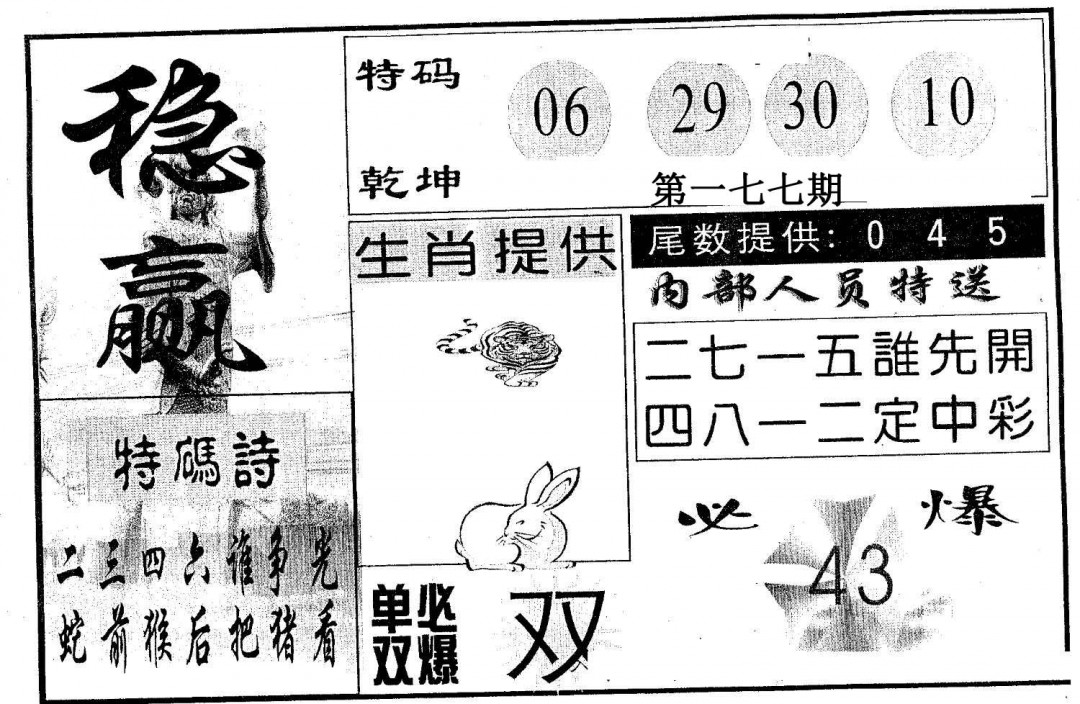 稳
赢
特码
乾坤
06 29 30 10
第一七七期
生肖提供
尾数提供: 0 4 5
内部人员特送
二七一五誰先開
四八一二定中彩
特碼詩
二三四六谁争光
蛇前猴后把猪看
必爆
43
单双
必爆
双